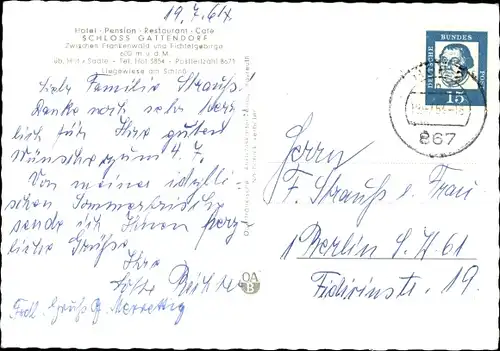 19.7.64.
Hotel · Pension · Restaurant · Café
SCHLOSS GATTENDORF
Zwischen Frankenwald und Fichtelgebirge
600 m u. d. M.
üb. Hof · Saale · Tel. Hof 3854 · Postleitzahl 8671
Liegewiese am Schloß
Liebe Familie Strauß!
Danke noch sehr herz
lich für Ihre guten
Wünsche zum 4. 7.
Von meiner idylli-
schen Sommerfrische
sende ich Ihnen herz
liche Grüße.
Ihre
Reichte
Frdl. Gruß G.
OA
B
DEUTSCHE BUNDES POST
15
867
Herrn
F. Strauß u. Frau
1 Berlin S.W. 61
Fidicinstr. 19.